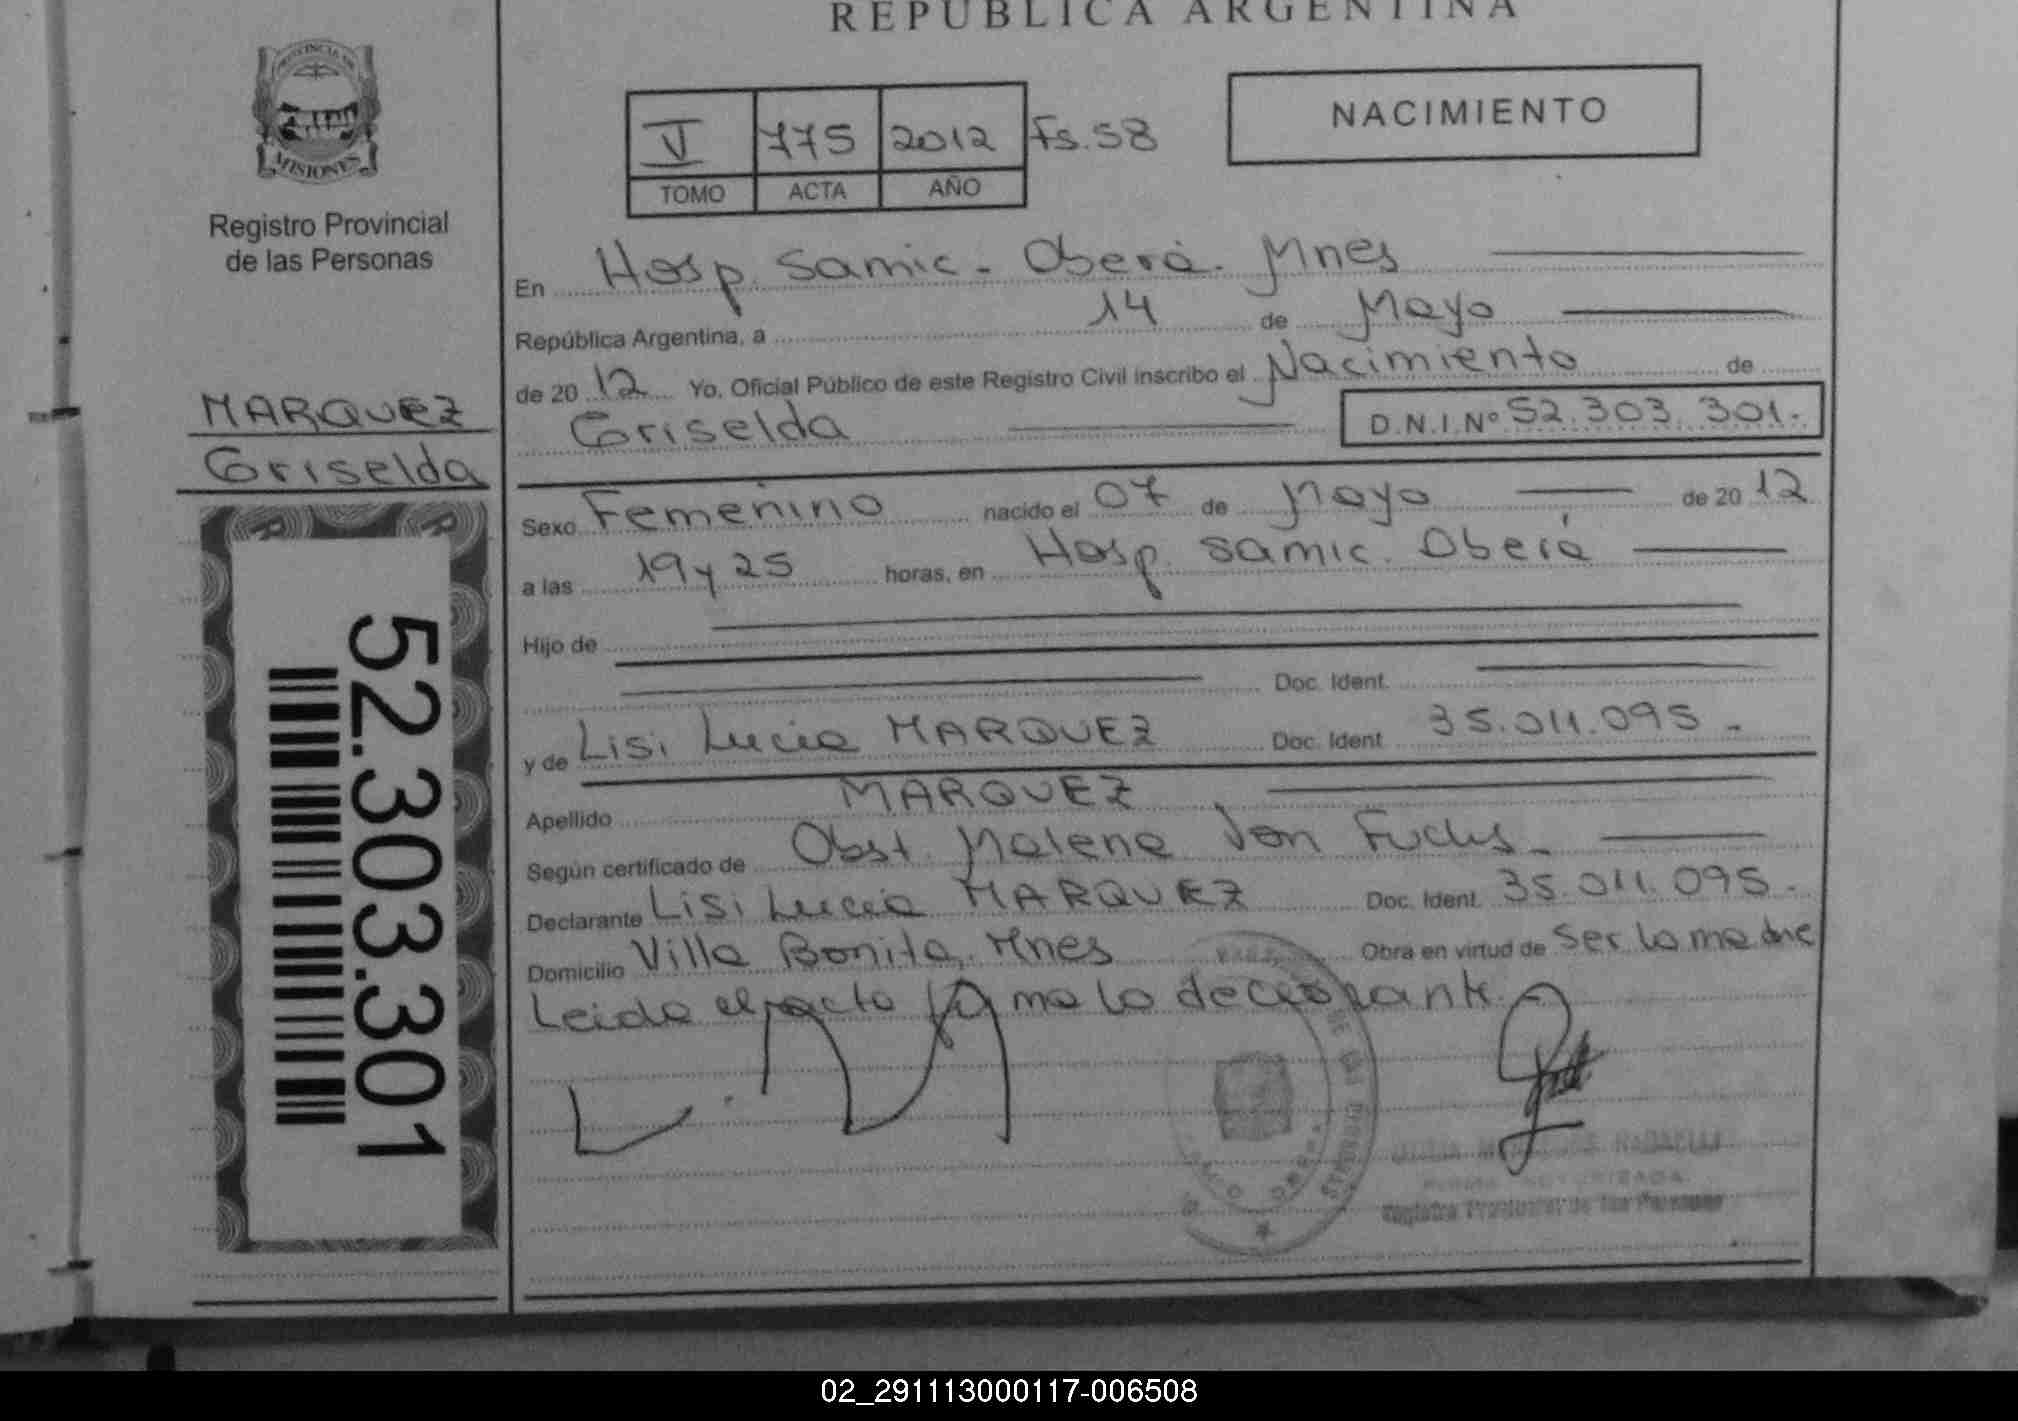 REPUBLICA ARGENTINA
PROVINCIA DE
MISIONES
Registro Provincial
de las Personas
V 775 2012 Fs. 58
TOMO ACTA AÑO
NACIMIENTO
En Hosp. Samic. Oberá. Mnes
República Argentina, a 14 de Mayo
de 2012 Yo, Oficial Público de este Registro Civil inscribo el Nacimiento de
Griselda D.N.I.Nº 52.303.301.-
MARQUEZ
Griselda
Sexo Femenino nacido el 07 de Mayo de 2012
a las 19 y 25 horas, en Hosp. Samic. Oberá
Hijo de
Doc. Ident.
y de Lisi Lucia MARQUEZ Doc. Ident 35.011.095.-
Apellido MARQUEZ
Según certificado de Obst. Malena Von Fuchs.-
Declarante Lisi Lucia MARQUEZ Doc. Ident. 35.011.095.-
Domicilio Villa Bonita, Mnes Obra en virtud de Ser la madre
Leida el acta firma la declarante.-
52.303.301
Registro Provincial de las Personas
02_291113000117-006508